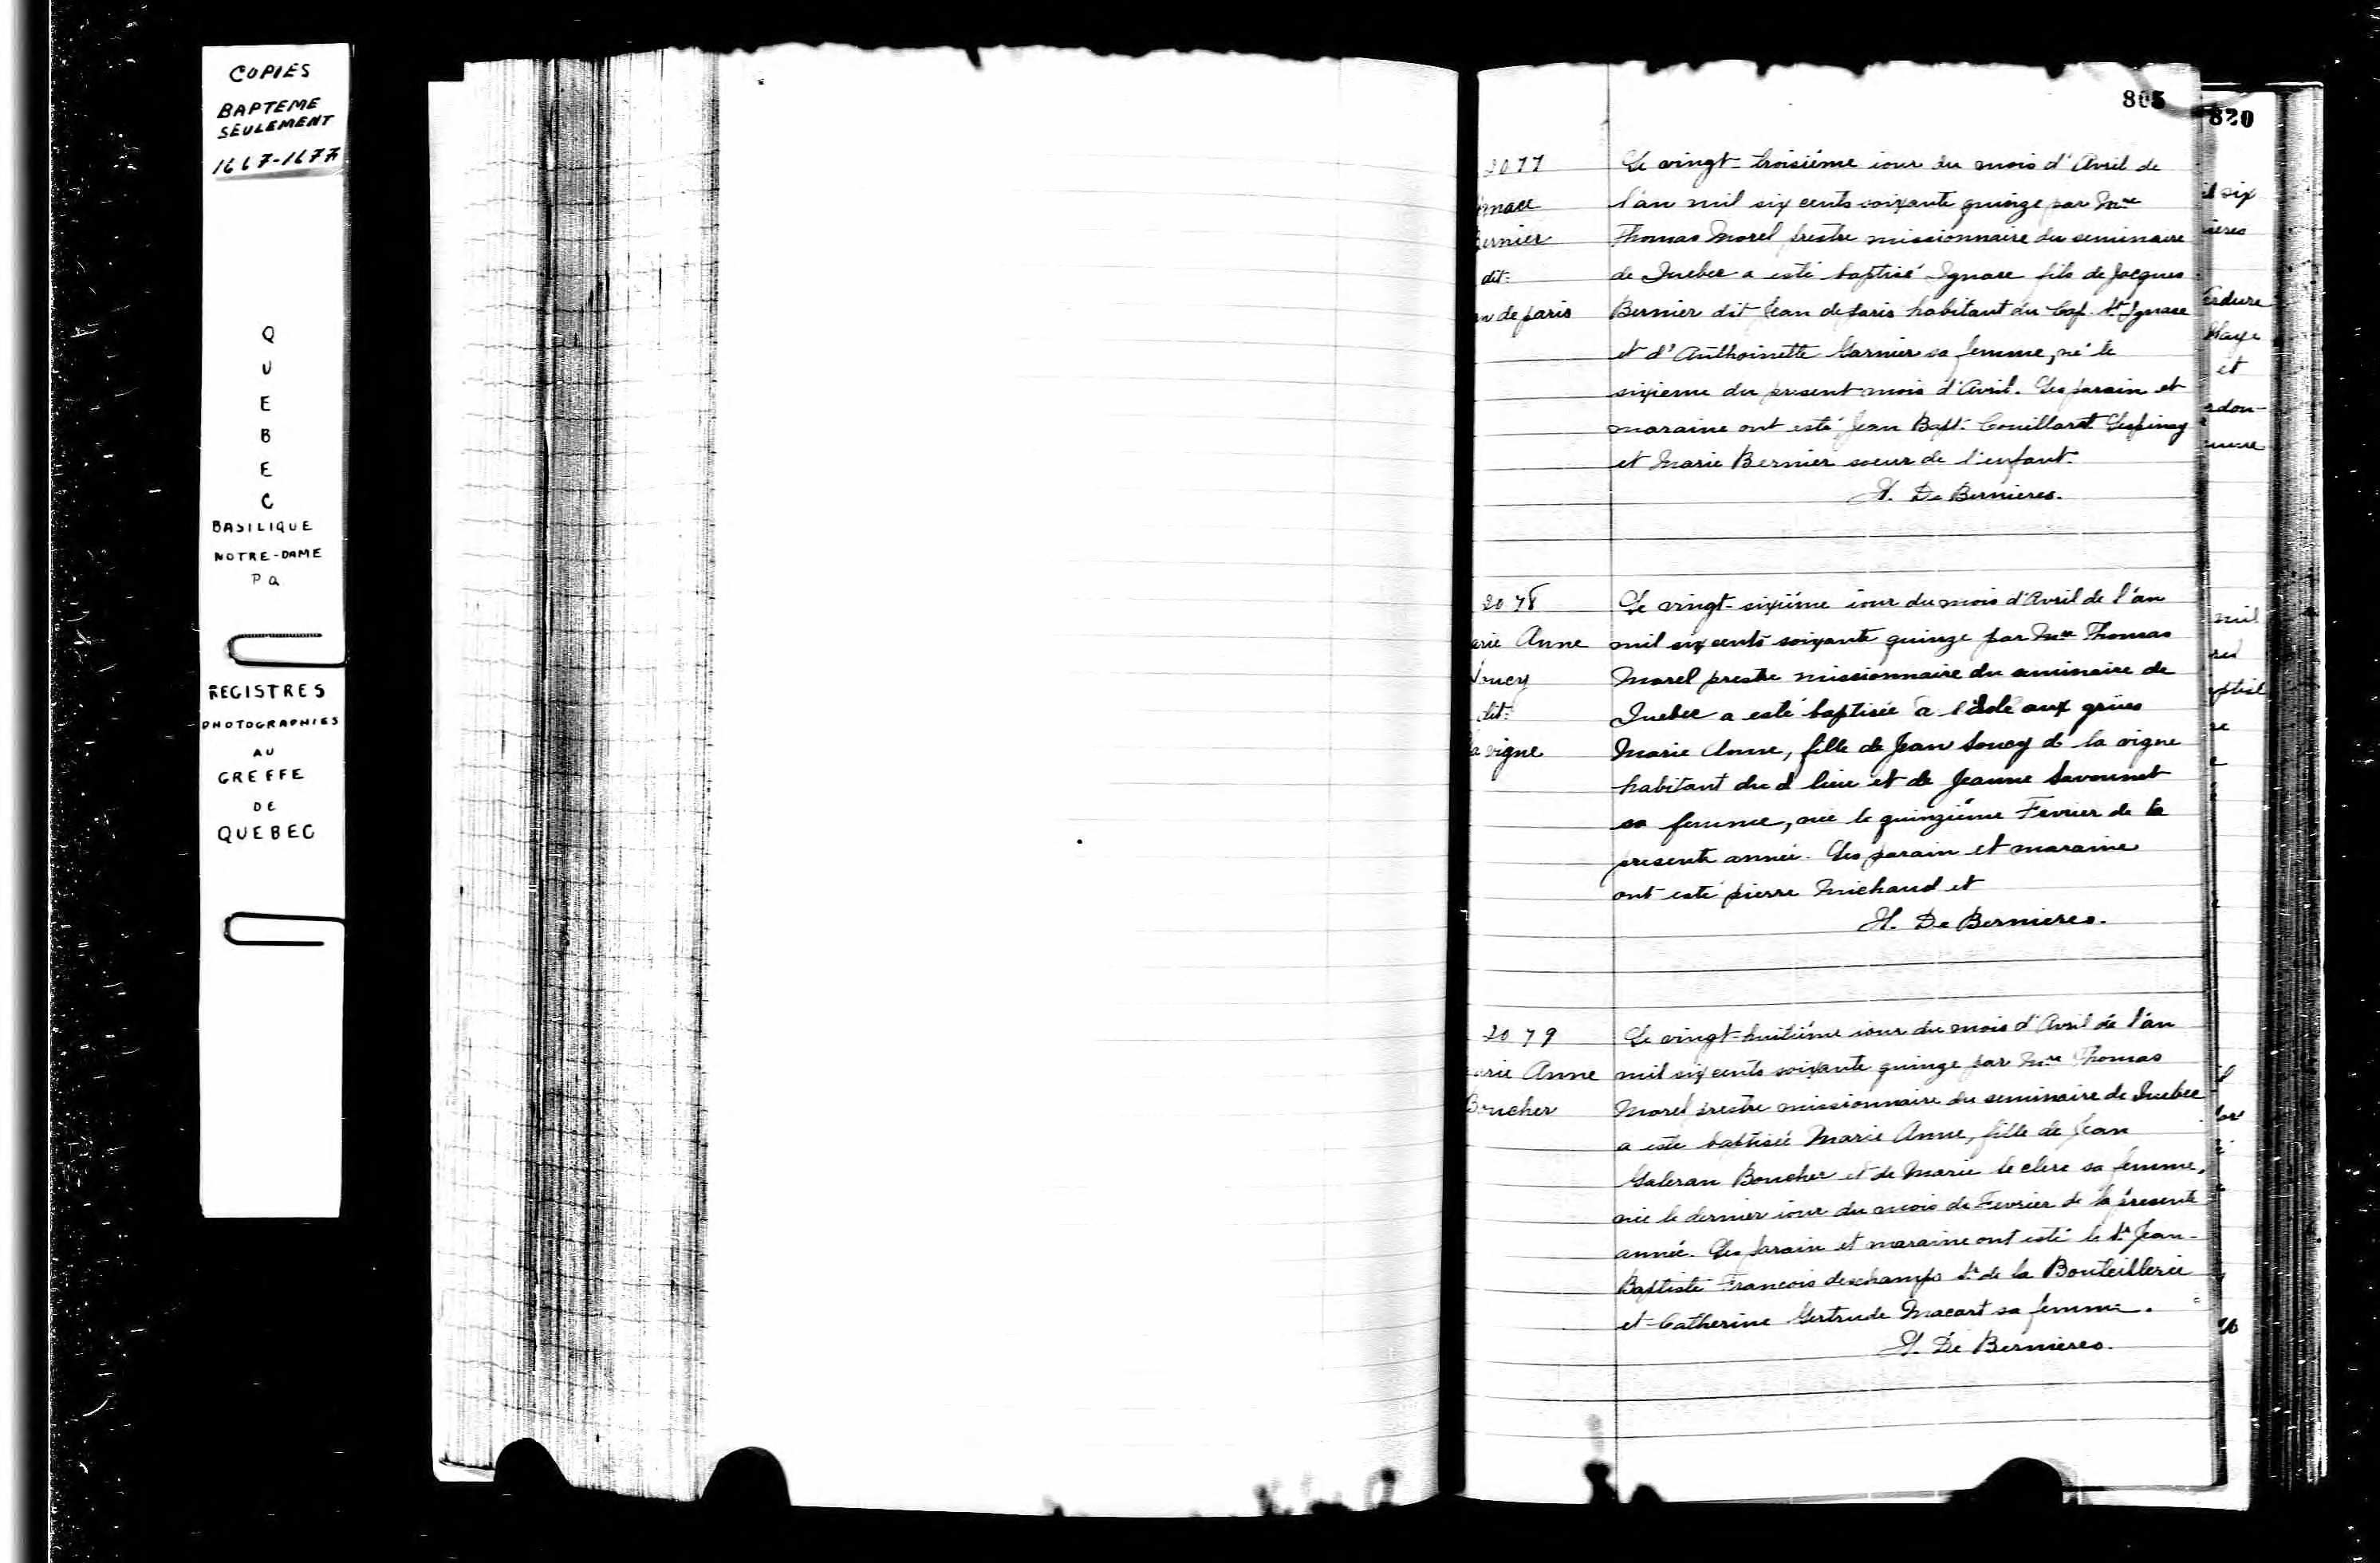 COPIES
BAPTEME
SEULEMENT
1667-1677
Q
U
E
B
E
C
BASILIQUE
NOTRE-DAME
P Q
REGISTRES
PHOTOGRAPHIES
AU
GREFFE
DE
QUEBEC
805
2077
Le vingt-troisiéme iour du mois d'Avril de
gnace
l'an mil six cents soixante quinze par Mre
Bernier
Thomas Morel prestre missionnaire du seminaire
dit:
de Quebec a esté baptisé Ignace fils de Jacques
n de paris
Bernier dit Jean de paris habitant du Cap. St Ignace
et d'Anthoinette Garnier sa femme, né le
sixieme du present mois d'Avril. Les parain et
maraine ont esté Jean Bapt: Couillart Lespinay
et Marie Bernier soeur de l'enfant.
H. De Bernieres.
2078
Le vingt-sixiéme iour du mois d'Avril de l'an
arie Anne
mil six cents soixante quinze par Mre Thomas
Soucy
Morel prestre missionnaire du seminaire de
dit:
Quebec a esté baptisée a l'Isle aux grües
la vigne
Marie Anne, fille de Jean Soucy d la vigne
habitant du d lieu et de Jeanne Savonnet
sa femme, née le quinziéme Fevrier de la
presente année. Les parain et maraine
ont esté pierre Michaud et
H. De Bernieres.
2079
Le vingt-huitiéme iour du mois d'Avril de l'an
arie Anne
mil six cents soixante quinze par Mre Thomas
Boucher
Morel prestre missionnaire du seminaire de Quebec
a este baptisée Marie Anne, fille de Jean
Galeran Boucher et de Marie le clerc sa femme,
née le dernier iour du mois de Fevrier de la presente
année. Les parain et maraine ont esté le Sr Jean-
Baptiste Francois deschamps Sr de la Bouteillerie
et Catherine Gertrude Macart sa femme.
H. De Bernieres.
820
il six
ieres
erdure
Haye
et
rdon-
mil